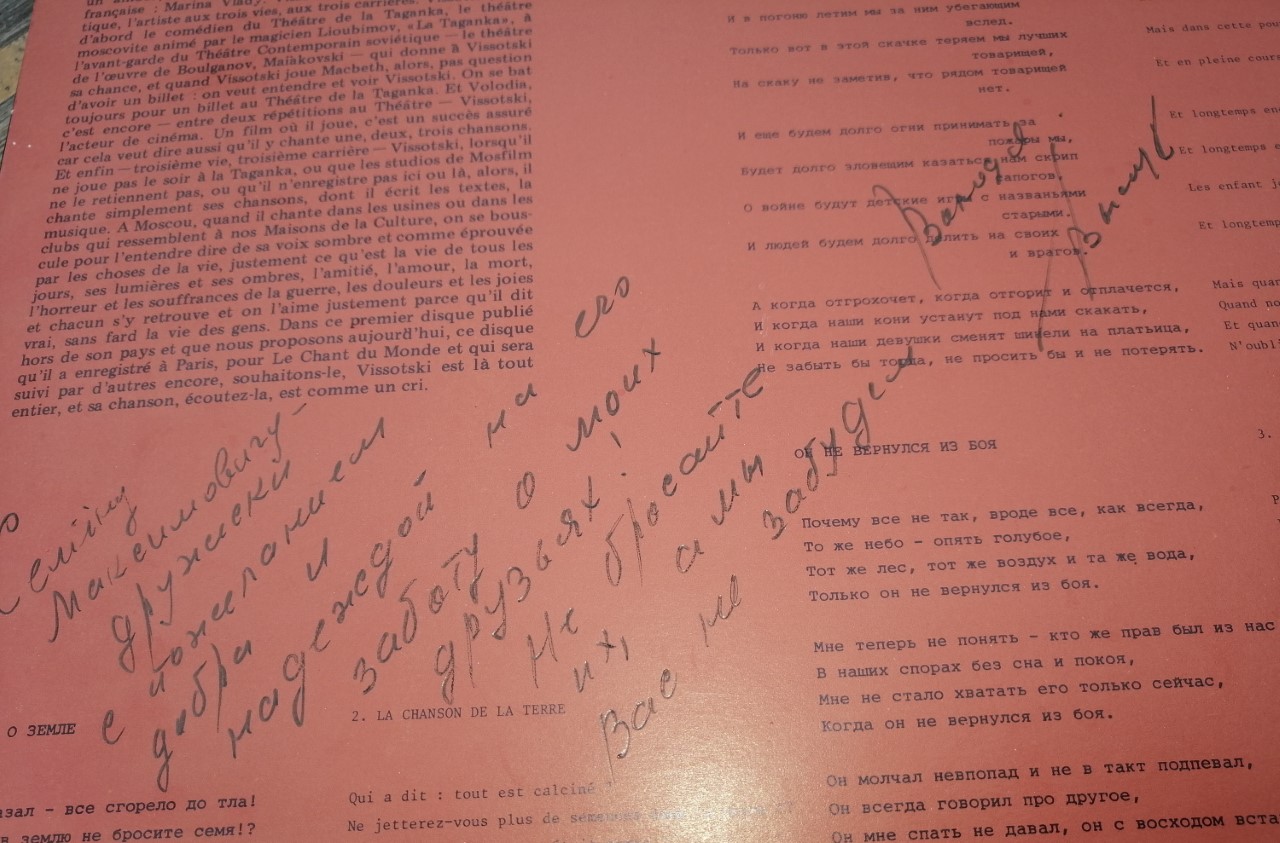 française : Marina Vlady.
tique, l'artiste aux trois vies, aux trois carrières.
d'abord le comédien du Théâtre de la Taganka, le théâtre
moscovite animé par le magicien Lioubimov, «La Taganka», à
l'avant-garde du Théâtre Contemporain soviétique — le théâtre
de l'œuvre de Boulganov, Maïakovski — qui donne à Vissotski
sa chance, et quand Vissotski joue Macbeth, alors, pas question
d'avoir un billet : on veut entendre et voir Vissotski. On se bat
toujours pour un billet au Théâtre de la Taganka. Et Volodia,
c'est encore — entre deux répétitions au Théâtre — Vissotski,
l'acteur de cinéma. Un film où il joue, c'est un succès assuré
car cela veut dire aussi qu'il y chante une, deux, trois chansons.
Et enfin — troisième vie, troisième carrière — Vissotski, lorsqu'il
ne joue pas le soir à la Taganka, ou que les studios de Mosfilm
ne le retiennent pas, ou qu'il n'enregistre pas ici ou là, alors, il
chante simplement ses chansons, dont il écrit les textes, la
musique. A Moscou, quand il chante dans les usines ou dans les
clubs qui ressemblent à nos Maisons de la Culture, on se bous-
cule pour l'entendre dire de sa voix sombre et comme éprouvée
par les choses de la vie, justement ce qu'est la vie de tous les
jours, ses lumières et ses ombres, l'amitié, l'amour, la mort,
l'horreur et les souffrances de la guerre, les douleurs et les joies
et chacun s'y retrouve et on l'aime justement parce qu'il dit
vrai, sans fard la vie des gens. Dans ce premier disque publié
hors de son pays et que nous proposons aujourd'hui, ce disque
qu'il a enregistré à Paris, pour Le Chant du Monde et qui sera
suivi par d'autres encore, souhaitons-le, Vissotski est là tout
entier, et sa chanson, écoutez-la, est comme un cri.
Семёну
Максимовичу –
дружески
с пожеланием
добра и
надеждой на его
заботу о моих
друзьях!
Не бросайте
их, а мы
Вас не забудем
О ЗЕМЛЕ
азал - все сгорело до тла!
в землю не бросите семя!?
2. LA CHANSON DE LA TERRE
Qui a dit : tout est calciné
Ne jetterez-vous plus de semences
И в погоню летим мы за ним убегающим
вслед.
Только вот в этой скачке теряем мы лучших
товарищей,
На скаку не заметив, что рядом товарищей
нет.
И еще будем долго огни принимать за
пожары мы,
Будет долго зловещим казаться нам скрип
сапогов,
О войне будут детские игры с названьями
старыми.
И людей будем долго делить на своих
и врагов.
А когда отгрохочет, когда отгорит и отплачется,
И когда наши кони устанут под нами скакать,
И когда наши девушки сменят шинели на платьица,
Не забыть бы тогда, не просить бы и не потерять.
ОН НЕ ВЕРНУЛСЯ ИЗ БОЯ
Почему все не так, вроде все, как всегда,
То же небо - опять голубое,
Тот же лес, тот же воздух и та же вода,
Только он не вернулся из боя.
Мне теперь не понять - кто же прав был из нас
В наших спорах без сна и покоя,
Мне не стало хватать его только сейчас,
Когда он не вернулся из боя.
Он молчал невпопад и не в такт подпевал,
Он всегда говорил про другое,
Он мне спать не давал, он с восходом вста
Mais dans cette pou
Et en pleine cours
Et longtemps en
Et longtemps e
Les enfant j
Et longtemp
Mais quan
Quand no
Et quan
N'oubl
3.